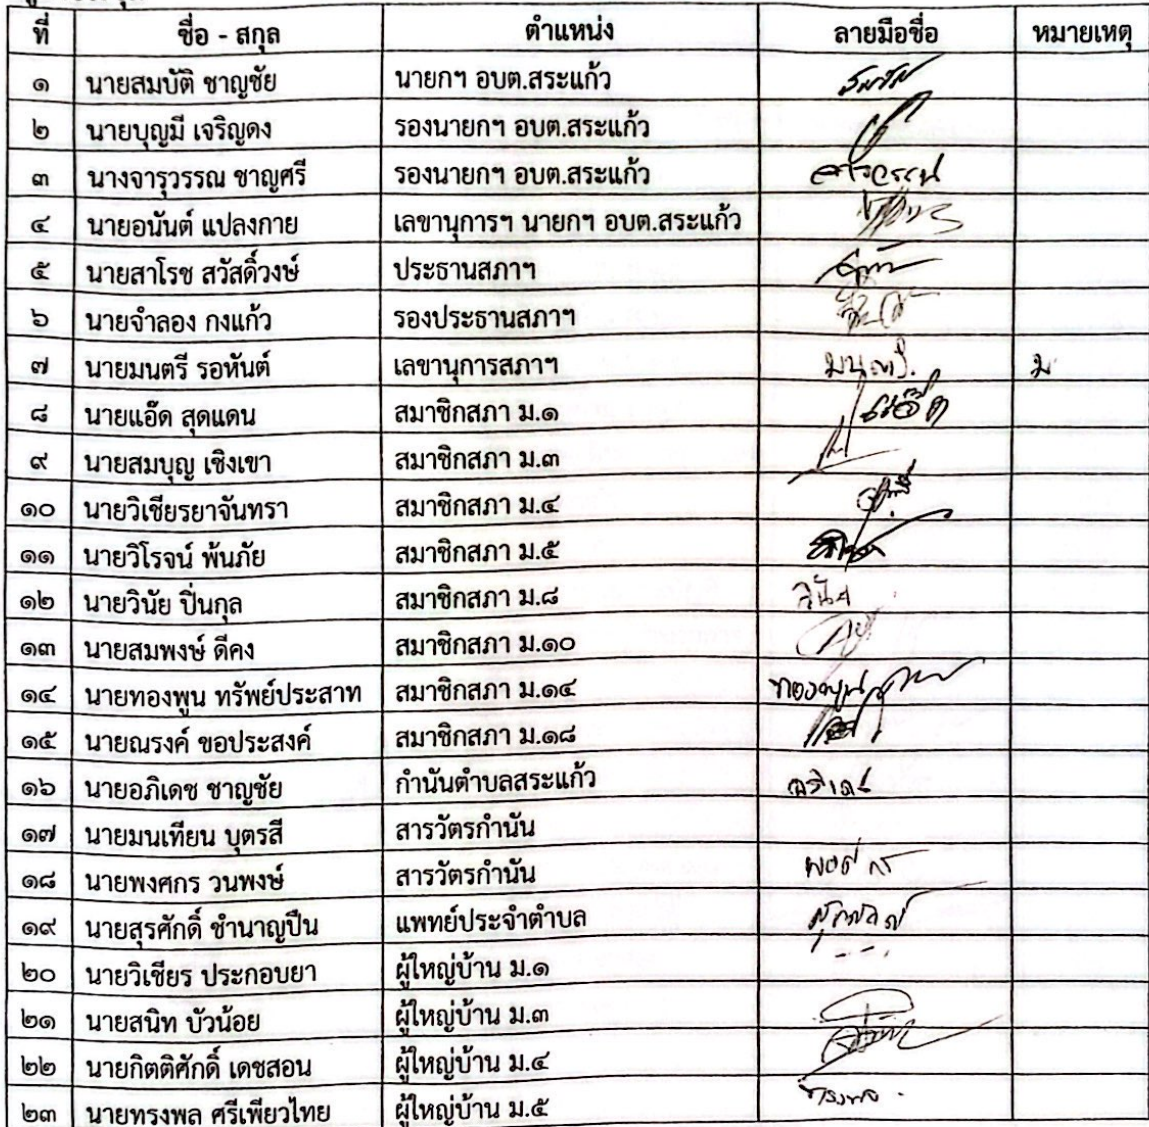 ที่ ชื่อ - สกุล ตำแหน่ง ลายมือชื่อ หมายเหตุ
๑ นายสมบัติ ชาญชัย นายกฯ อบต.สระแก้ว
๒ นายบุญมี เจริญดง รองนายกฯ อบต.สระแก้ว
๓ นางจารุวรรณ ชาญศรี รองนายกฯ อบต.สระแก้ว จารุวรรณ
๔ นายอนันต์ แปลงกาย เลขานุการฯ นายกฯ อบต.สระแก้ว
๕ นายสาโรช สวัสดิ์วงษ์ ประธานสภาฯ
๖ นายจำลอง กงแก้ว รองประธานสภาฯ
๗ นายมนตรี รอหันต์ เลขานุการสภาฯ มนตรี. ม
๘ นายแอ๊ด สุดแดน สมาชิกสภา ม.๑ แอ๊ด
๙ นายสมบุญ เชิงเขา สมาชิกสภา ม.๓
๑๐ นายวิเชียรยาจันทรา สมาชิกสภา ม.๔
๑๑ นายวิโรจน์ พ้นภัย สมาชิกสภา ม.๕
๑๒ นายวินัย ปิ่นกุล สมาชิกสภา ม.๘ วินัย
๑๓ นายสมพงษ์ ดีคง สมาชิกสภา ม.๑๐
๑๔ นายทองพูน ทรัพย์ประสาท สมาชิกสภา ม.๑๔ ทองพูน
๑๕ นายณรงค์ ขอประสงค์ สมาชิกสภา ม.๑๘
๑๖ นายอภิเดช ชาญชัย กำนันตำบลสระแก้ว อภิเดช
๑๗ นายมนเทียน บุตรสี สารวัตรกำนัน
๑๘ นายพงศกร วนพงษ์ สารวัตรกำนัน
๑๙ นายสุรศักดิ์ ชำนาญปืน แพทย์ประจำตำบล
๒๐ นายวิเชียร ประกอบยา ผู้ใหญ่บ้าน ม.๑
๒๑ นายสนิท บัวน้อย ผู้ใหญ่บ้าน ม.๓
๒๒ นายกิตติศักดิ์ เดชสอน ผู้ใหญ่บ้าน ม.๔
๒๓ นายทรงพล ศรีเพียวไทย ผู้ใหญ่บ้าน ม.๕ ทรงพล